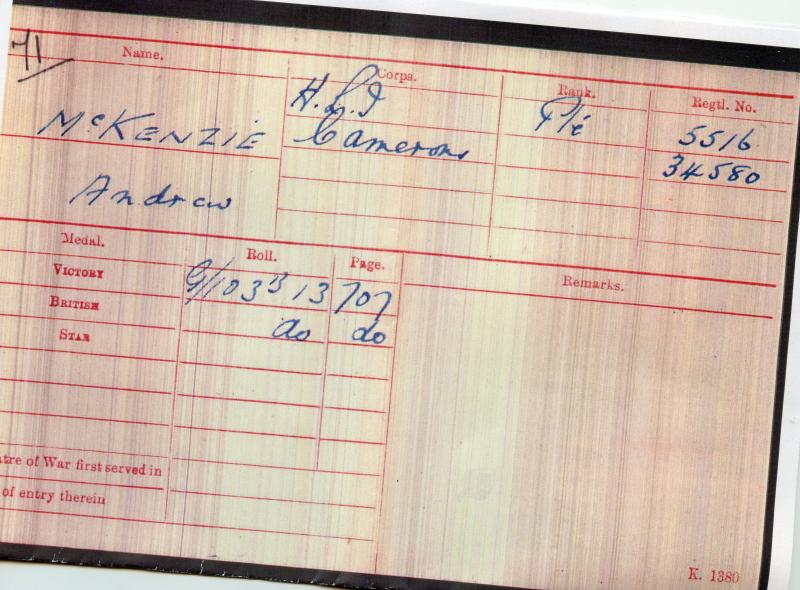 71
Name. Corps. Rank. Regtl. No.
McKENZIE H.L.I Pte 5516
Camerons 34580
Andrew
Medal. Roll. Page. Remarks.
VICTORY G/103B13 707
BRITISH do do
STAR
tre of War first served in
of entry therein
K. 1380